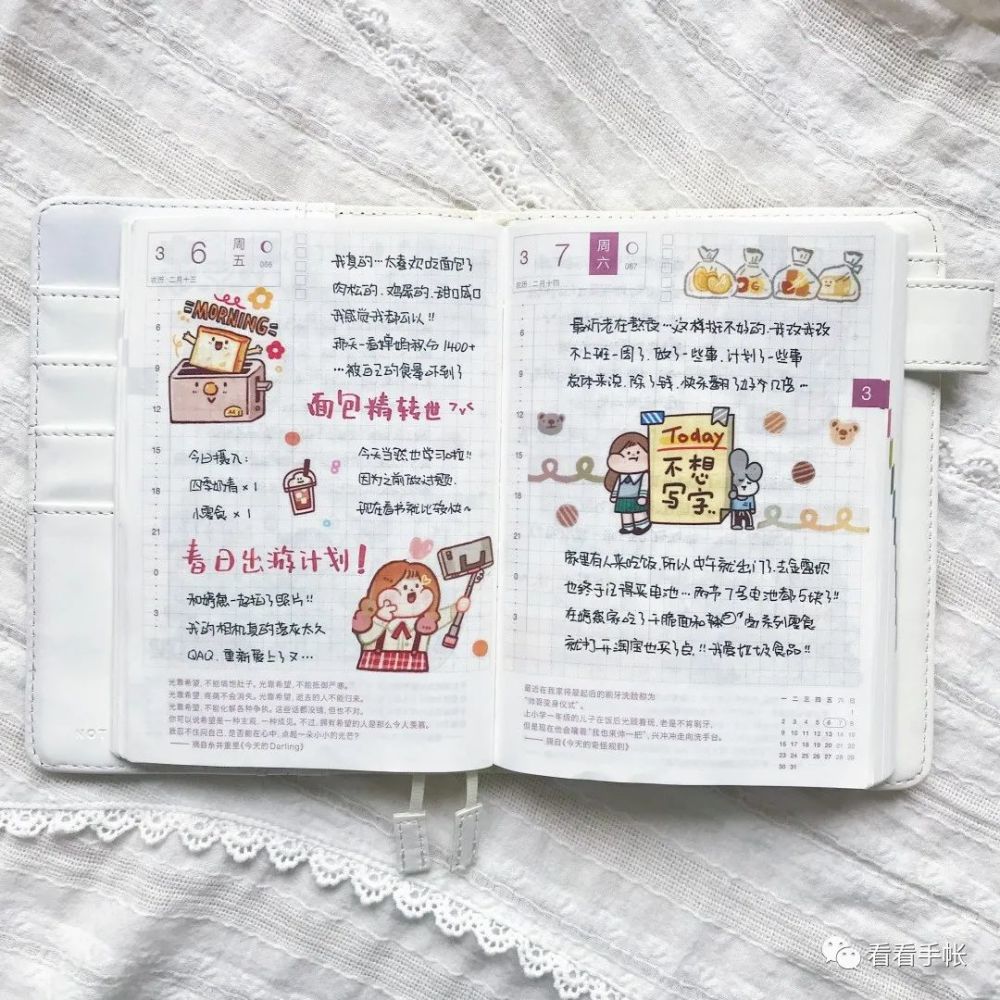 3 6 周五 066
农历·二月十三
我真的…太喜欢吃面包了
肉松的.鸡蛋的.甜口咸口
我感觉我都可以!!
那天一看蜂蚂积分1400+
…被自己的食量吓到了
MORNING
面包精转世
今日摄入:
四季奶青×1
小零食×1
今天当然也学习啦!!
因为之前做过题.
现在看书就比较快~
春日出游计划!
和 一起拍了照片!!
我的相机真的落灰太久
QAQ.重新爱上了又…
光靠希望,不能填饱肚子。光靠希望,不能抵御严寒。
光靠希望,疼痛不会消失。光靠希望,逝去的人不能归来。
光靠希望,不能化解各种争执。这些话都没错,但也不对。
你可以说希望是一种主观,一种成见。不过,拥有希望的人是那么令人羡慕,
就忍不住问自己,是否能在心中,点起一朵小小的光芒?
——摘自糸井重里《今天的Darling》
NOT
3 7 周六 067
农历·二月十四
最近老在熬夜…这样挺不好的.我改我改
不上班一周了.做了一些事.计划了一些事
总体来说.除了钱.快乐翻了好多几倍…
3
Today
不想
写字..
家里有人来吃饭,所以中午就出门了.去
也终于记得买电池…两节7号电池都5块了!!
在 家吃了干脆面和 系列零食
就打开淘宝也买了点!!我爱垃圾食品!!
最近在我家将晨起后的刷牙洗脸称为
“帅哥变身仪式”。
上小学一年级的儿子在饭后光顾着玩,老是不肯刷牙,
但是现在他会嚷着“我也来帅一把”,兴冲冲走向洗手台。
——摘自《今天的奇怪规则》
一 二 三 四 五 六 日
1
2 3 4 5 6 7 8
9 10 11 12 13 14 15
16 17 18 19 20 21 22
23 24 25 26 27 28 29
30 31
看看手帐